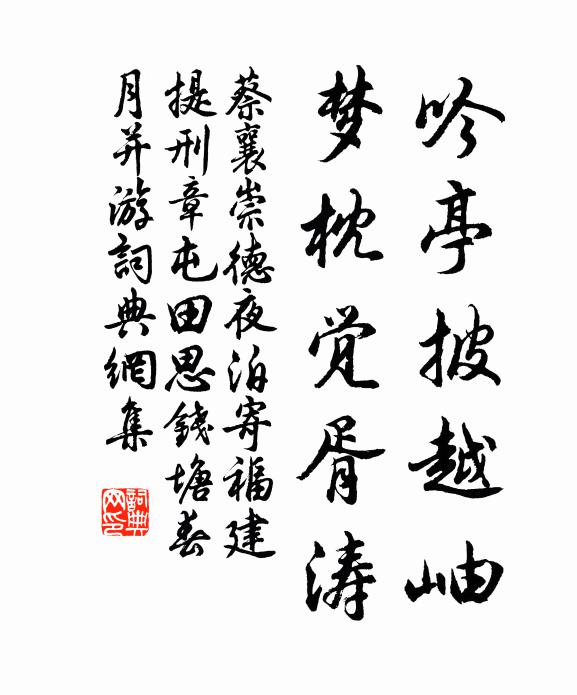 吟亭披越岫
梦枕觉胥涛
蔡襄崇德夜泊寄福建
提刑章屯田思錢塘春
月并游詞典網集
詞典网印